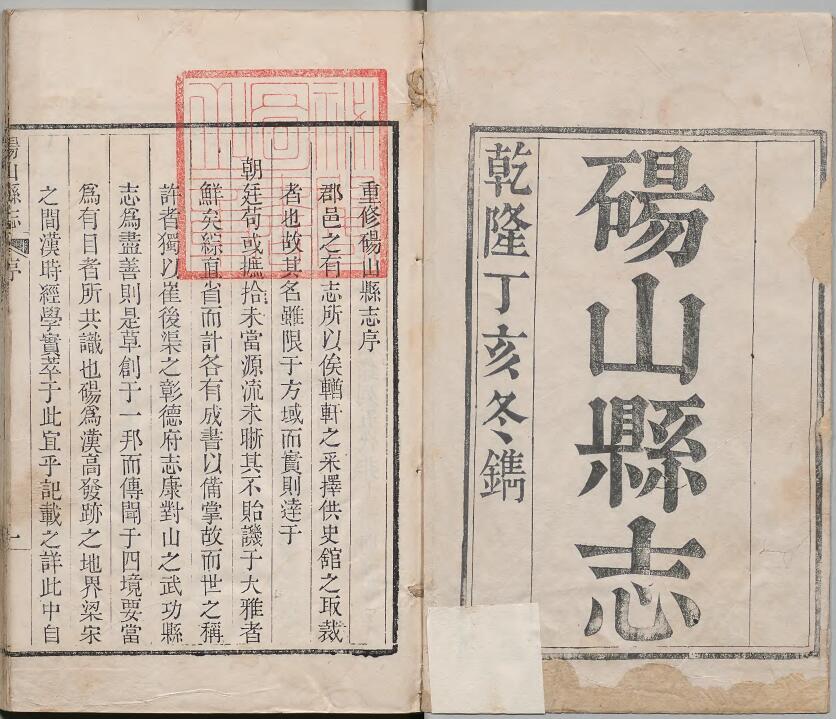 碭山縣志
乾隆丁亥冬鐫
重修碭山縣志序
郡邑之有志所以俟輶軒之采擇供史舘之取裁
者也故其名雖限于方域而實則達于
朝廷苟或摭拾未當源流未晰其不貽譏于大雅者
鮮矣綜直省而計各有成書以備掌故而世之稱
許者獨以崔後渠之彰德府志康對山之武功縣
志爲盡善則是草創于一邦而傳聞于四境要當
爲有目者所共識也碭爲漢高發跡之地界梁宋
之間漢時經學實萃于此宜乎記載之詳此中自
碭山縣志
序
一